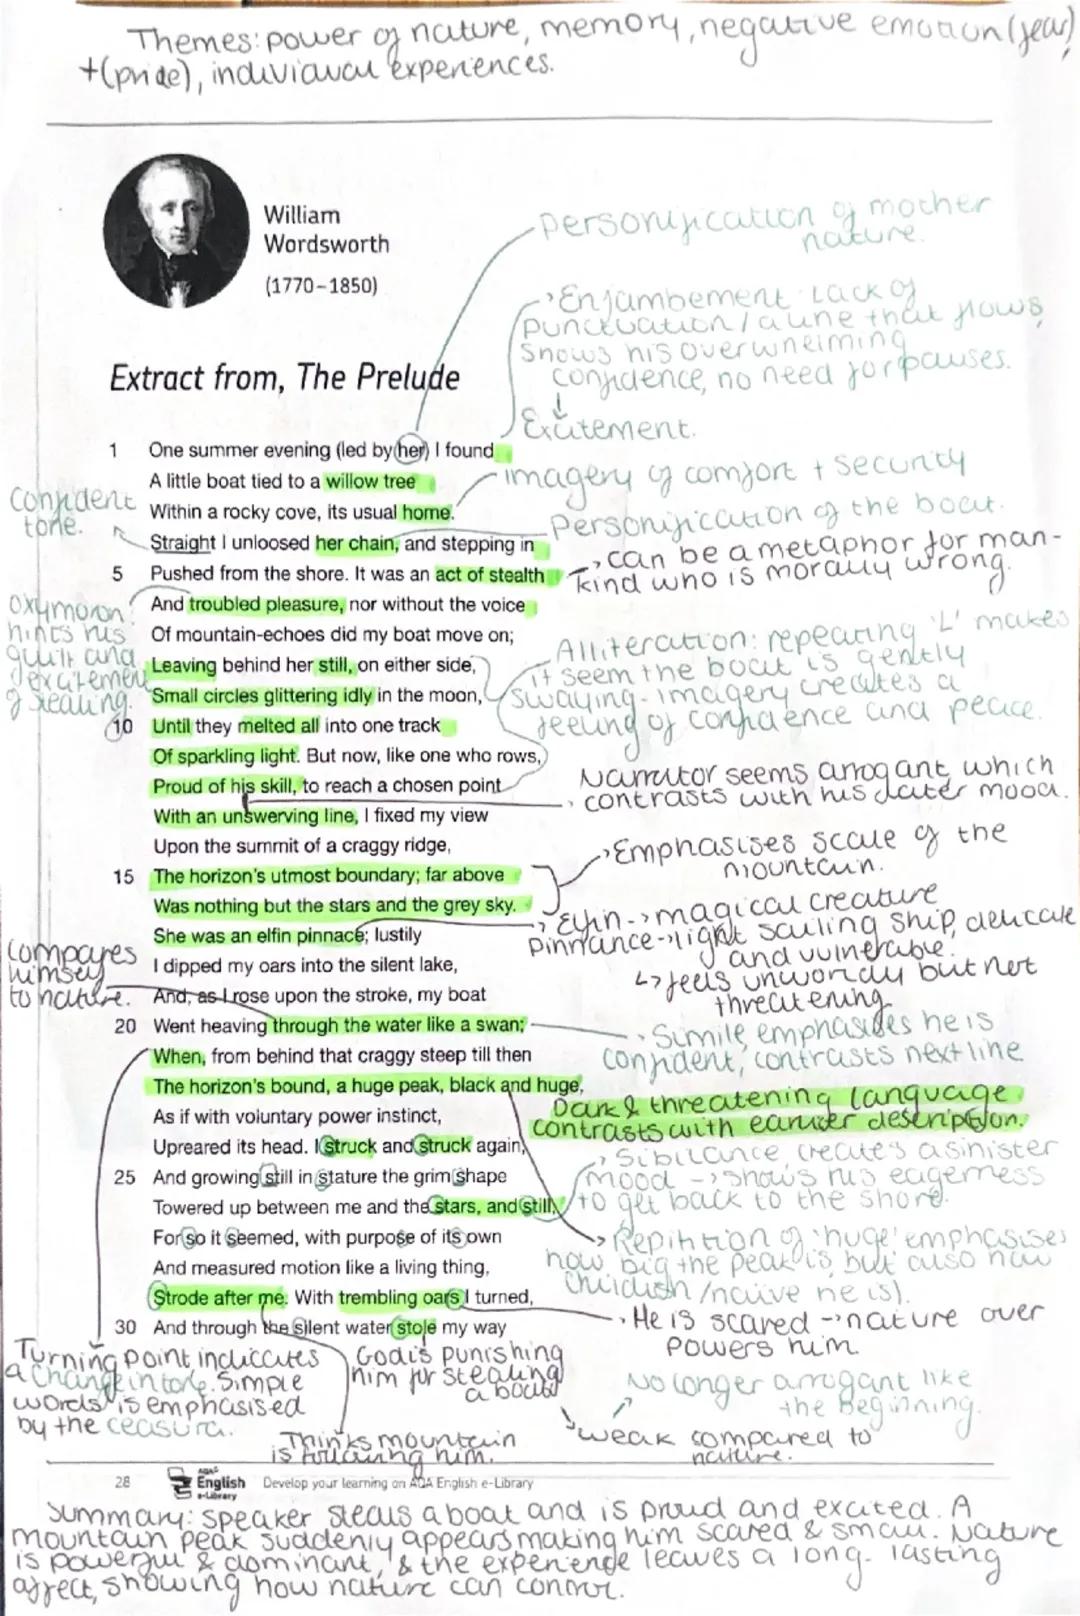 Themes: power of nature, memory, negative emotion (fear)
+ (pride), individual experiences.
William
Wordsworth
(1770–1850)
personification of mother
nature.
Enjambement Lack of
punctuation / a line that flows,
shows his overwhelming
confidence, no need for pauses.
↓
Excitement.
Extract from, The Prelude
1 One summer evening (led by her) I found
A little boat tied to a willow tree
imagery of comfort + security
Within a rocky cove, its usual home.
Confident
tone.
Personification of the boat.
Straight I unloosed her chain, and stepping in
→ can be a metaphor for man-
kind who is morally wrong.
5 Pushed from the shore. It was an act of stealth
And troubled pleasure, nor without the voice
Oxymoron:
hints his
guilt and
excitement
of stealing.
Of mountain-echoes did my boat move on;
Leaving behind her still, on either side,
Small circles glittering idly in the moon,
Alliteration: repeating 'L' makes
it seem the boat is gently
swaying - imagery creates a
feeling of confidence and peace.
10 Until they melted all into one track
Of sparkling light. But now, like one who rows,
Proud of his skill, to reach a chosen point
Narrator seems arrogant which
contrasts with his later mood.
With an unswerving line, I fixed my view
Upon the summit of a craggy ridge,
Emphasises scale of the
mountain.
15 The horizon's utmost boundary; far above
Was nothing but the stars and the grey sky.
Elfin -> magical creature
Pinnance -> light sailing ship, delicate
and vulnerable.
↳ feels unworldly but not
threatening
She was an elfin pinnace; lustily
I dipped my oars into the silent lake,
Compares
himself
to nature.
And, as I rose upon the stroke, my boat
20 Went heaving through the water like a swan;
Simile, emphasises he is
confident, contrasts next line
When, from behind that craggy steep till then
The horizon's bound, a huge peak, black and huge,
Dark & threatening language
contrasts with earlier description.
As if with voluntary power instinct,
Upreared its head. I struck and struck again,
Sibilance, creates a sinister
mood -> shows his eagerness
to get back to the shore.
25 And growing still in stature the grim shape
Towered up between me and the stars, and still,
For so it seemed, with purpose of its own
Repitition of 'huge' emphasises
how big the peak is, but also how
childish / naive he is).
And measured motion like a living thing,
Strode after me. With trembling oars I turned,
He is scared -> nature over
powers him.
30 And through the silent water stole my way
Turning point indiccates
a change in tone. Simple
words is emphasised
by the ceasura.
God is punishing
him for stealing
a boat
No longer arrogant like
the beginning.
Thinks mountain
is following him.
weak compared to
nature.
28 AQA English e-Library Develop your learning on AQA English e-Library
Summary: speaker steals a boat and is proud and excited. A
mountain peak suddenly appears making him scared & small. Nature
is powerful & dominant, & the experience leaves a long-lasting
affect, showing how nature can control.